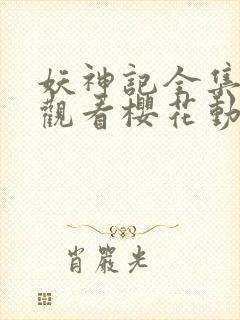 妖神記全集
觀看櫻花動
肖嚴光